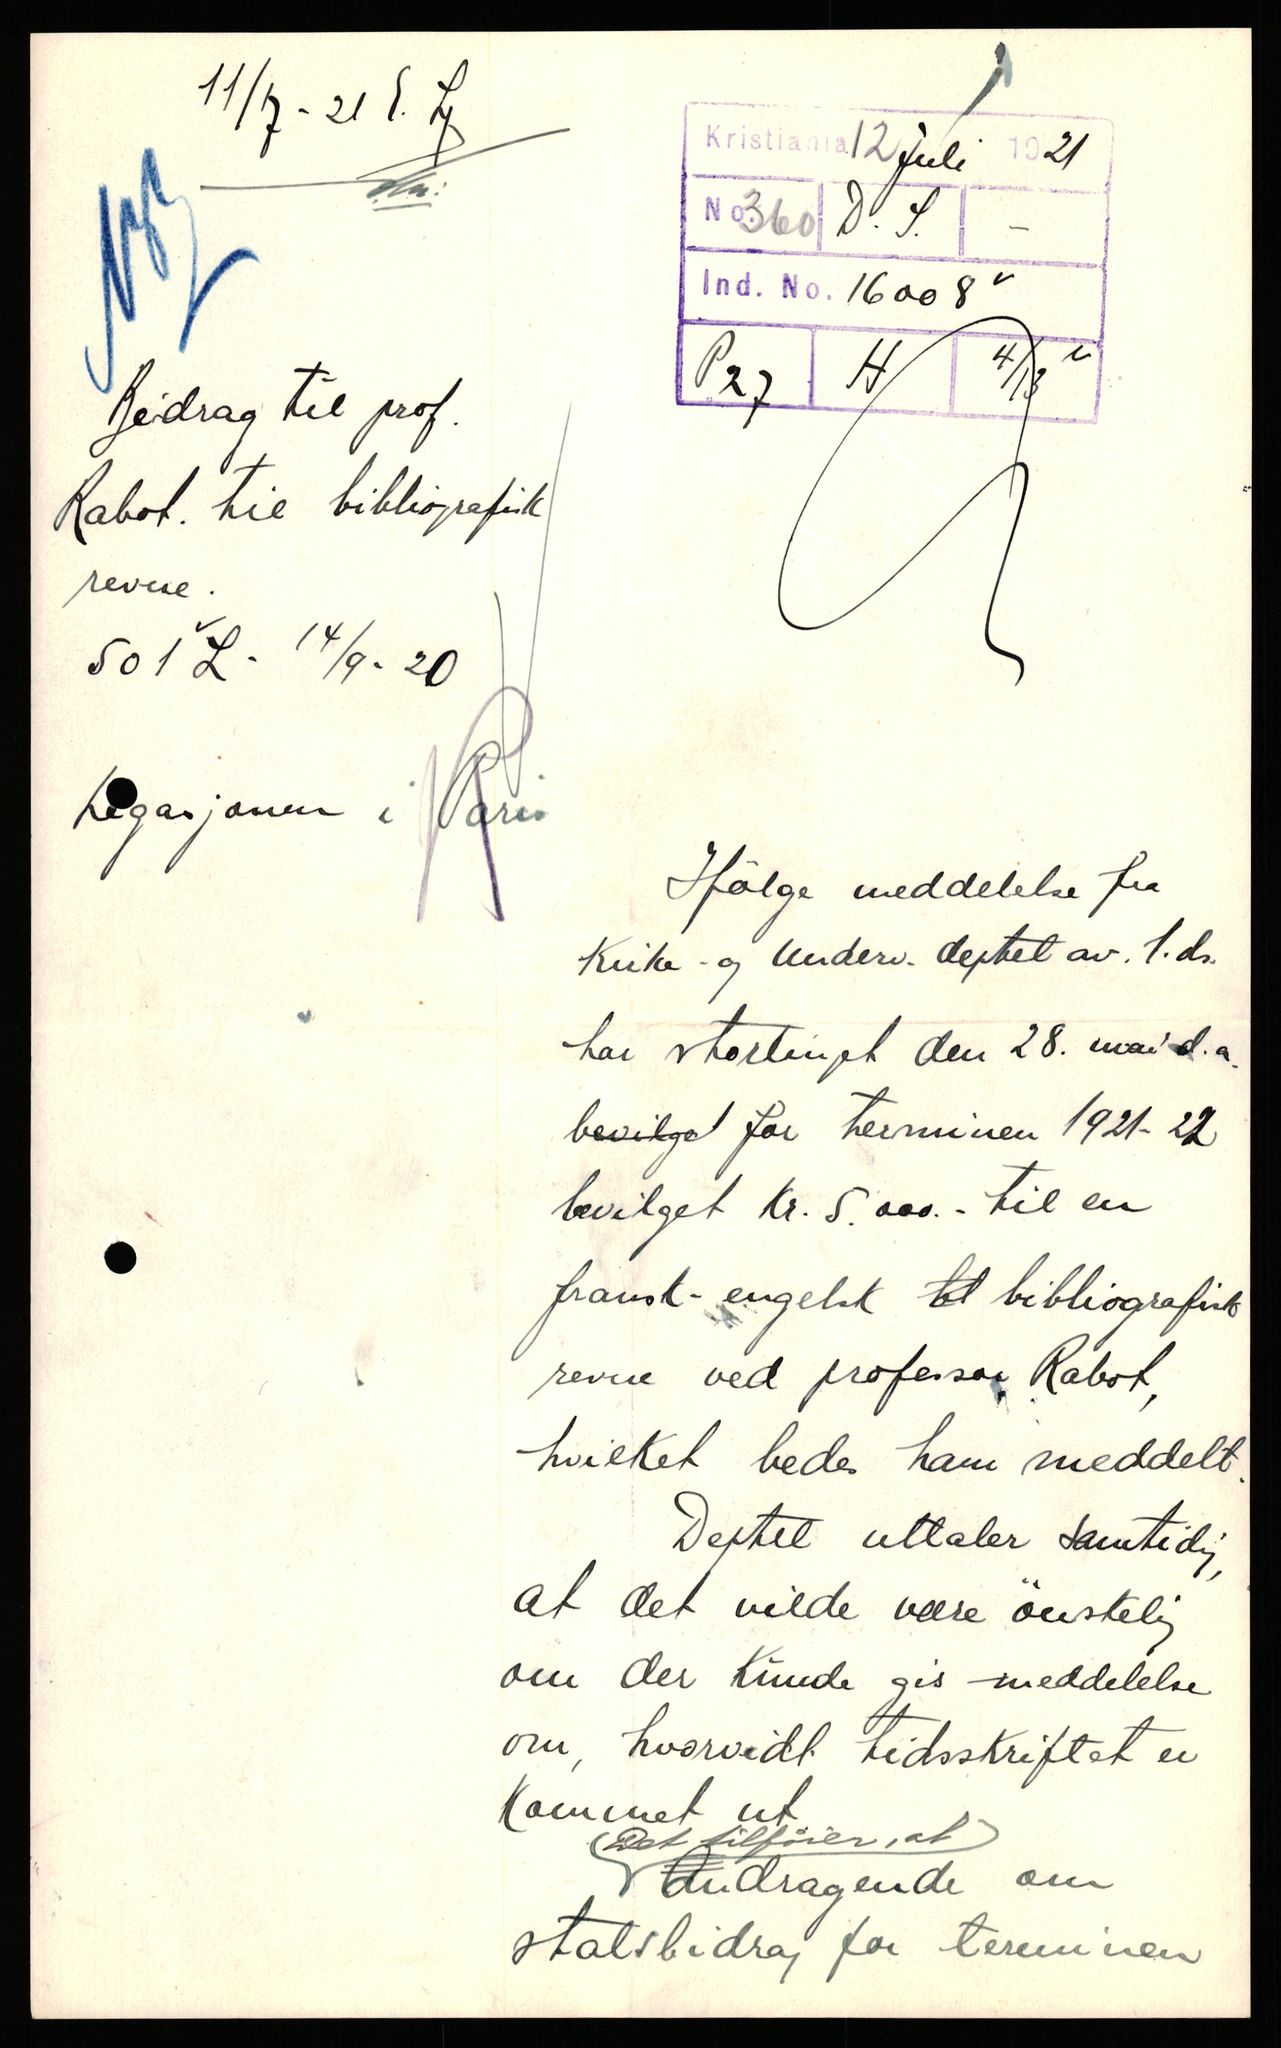 11/7 - 21 E. Ly
Kristiania 12 juli 1921
No. 360 D. S. -
Ind. No. 16008
P27 H 4/13
Bidrag til prof.
Rabot. til bibliografisk
revue.
501 L - 14/9 - 20
Legasjonen i Paris
Ifölge meddelelse fra
Kirke - og Underv. deptet av. 1. ds.
har stortinget den 28. mai d.a.
bevilget for terminen 1921-22
bevilget Kr. 5.000.- til en
fransk-engelsk bibliografisk
revue ved professor Rabot,
hvilket bedes ham meddelt.
Deptet uttaler samtidig,
at det vilde være önskelig
om der kunde gis meddelelse
om, hvorvidt tidsskriftet er
kommet ut
Det tilföier, at
Andragende om
statsbidrag for terminen